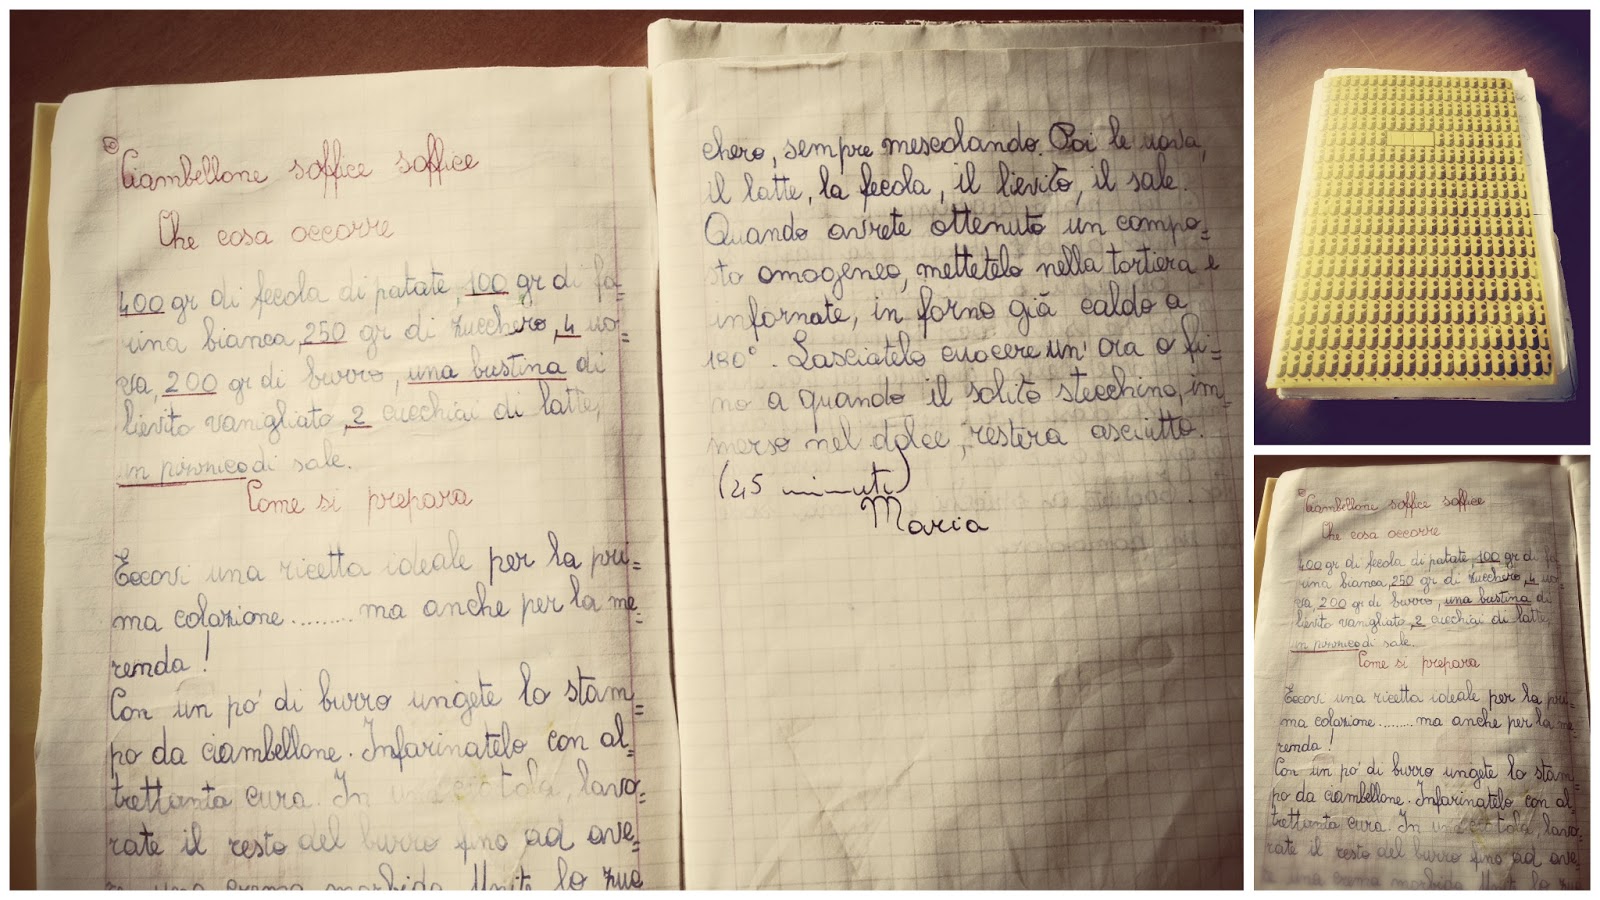 Ciambellone soffice soffice
Che cosa occorre
400 gr di fecola di patate, 100 gr di fa=
rina bianca, 250 gr di zucchero, 4 uo=
va, 200 gr di burro, una bustina di
lievito vanigliato, 2 cucchiai di latte,
un pizzico di sale.
Come si prepara
Eccovi una ricetta ideale per la pri=
ma colazione.........ma anche per la me=
renda!
Con un po' di burro ungete lo stam=
po da ciambellone. Infarinatelo con al=
trettanta cura. In una ciotola, lavo=
rate il resto del burro fino ad ave=
re una crema morbida. Unite lo zuc
chero, sempre mescolando. Poi le uova,
il latte, la fecola, il lievito, il sale.
Quando avrete ottenuto un compo=
sto omogeneo, mettetelo nella tortiera e
infornate, in forno già caldo a
180°. Lasciatelo cuocere un'ora o fi=
no a quando il solito stecchino, im=
merso nel dolce, resterà asciutto.
(45 minuti)
Maria
Ciambellone soffice soffice
Che cosa occorre
400 gr di fecola di patate, 100 gr di fa
rina bianca, 250 gr di zucchero, 4 uo=
va, 200 gr di burro, una bustina di
lievito vanigliato, 2 cucchiai di latte,
un pizzico di sale.
Come si prepara
Eccovi una ricetta ideale per la pri=
ma colazione.........ma anche per la me=
renda!
Con un po' di burro ungete lo stam=
po da ciambellone. Infarinatelo con al=
trettanta cura. In una ciotola, lavo=
rate il resto del burro fino ad ave=
re una crema morbida. Unite lo zuc